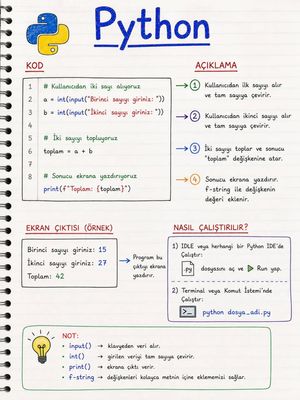 Python
KOD
1
# Kullanıcıdan iki sayı alıyoruz
2
a = int(input("Birinci sayıyı giriniz: "))
3
b = int(input("İkinci sayıyı giriniz: "))
4
5
# İki sayıyı topluyoruz
6
toplam = a + b
7
8
# Sonucu ekrana yazdırıyoruz
print(f"Toplam: {toplam}")
AÇIKLAMA
1 Kullanıcıdan ilk sayıyı alır
ve tam sayıya çevirir.
2 Kullanıcıdan ikinci sayıyı alır
ve tam sayıya çevirir.
3 İki sayıyı toplar ve sonucu
"toplam" değişkenine atar.
4 Sonucu ekrana yazdırır.
f-string ile değişkenin
değeri eklenir.
EKRAN ÇIKTISI (ÖRNEK)
Birinci sayıyı giriniz: 15
İkinci sayıyı giriniz: 27
Toplam: 42
Program bu
çıktıyı ekrana
yazdırır.
NASIL ÇALIŞTIRILIR?
1) IDLE veya herhangi bir Python IDE'de
Çalıştır:
.PY dosyasını aç ve ▶ Run yap.
2) Terminal veya Komut İstemi'nde
Çalıştır:
>_ python dosya_adi.py
NOT:
• input() → klavyeden veri alır.
• int() → girilen veriyi tam sayıya çevirir.
• print() → ekrana çıktı verir.
• f-string → değişkenleri kolayca metnin içine eklememizi sağlar.